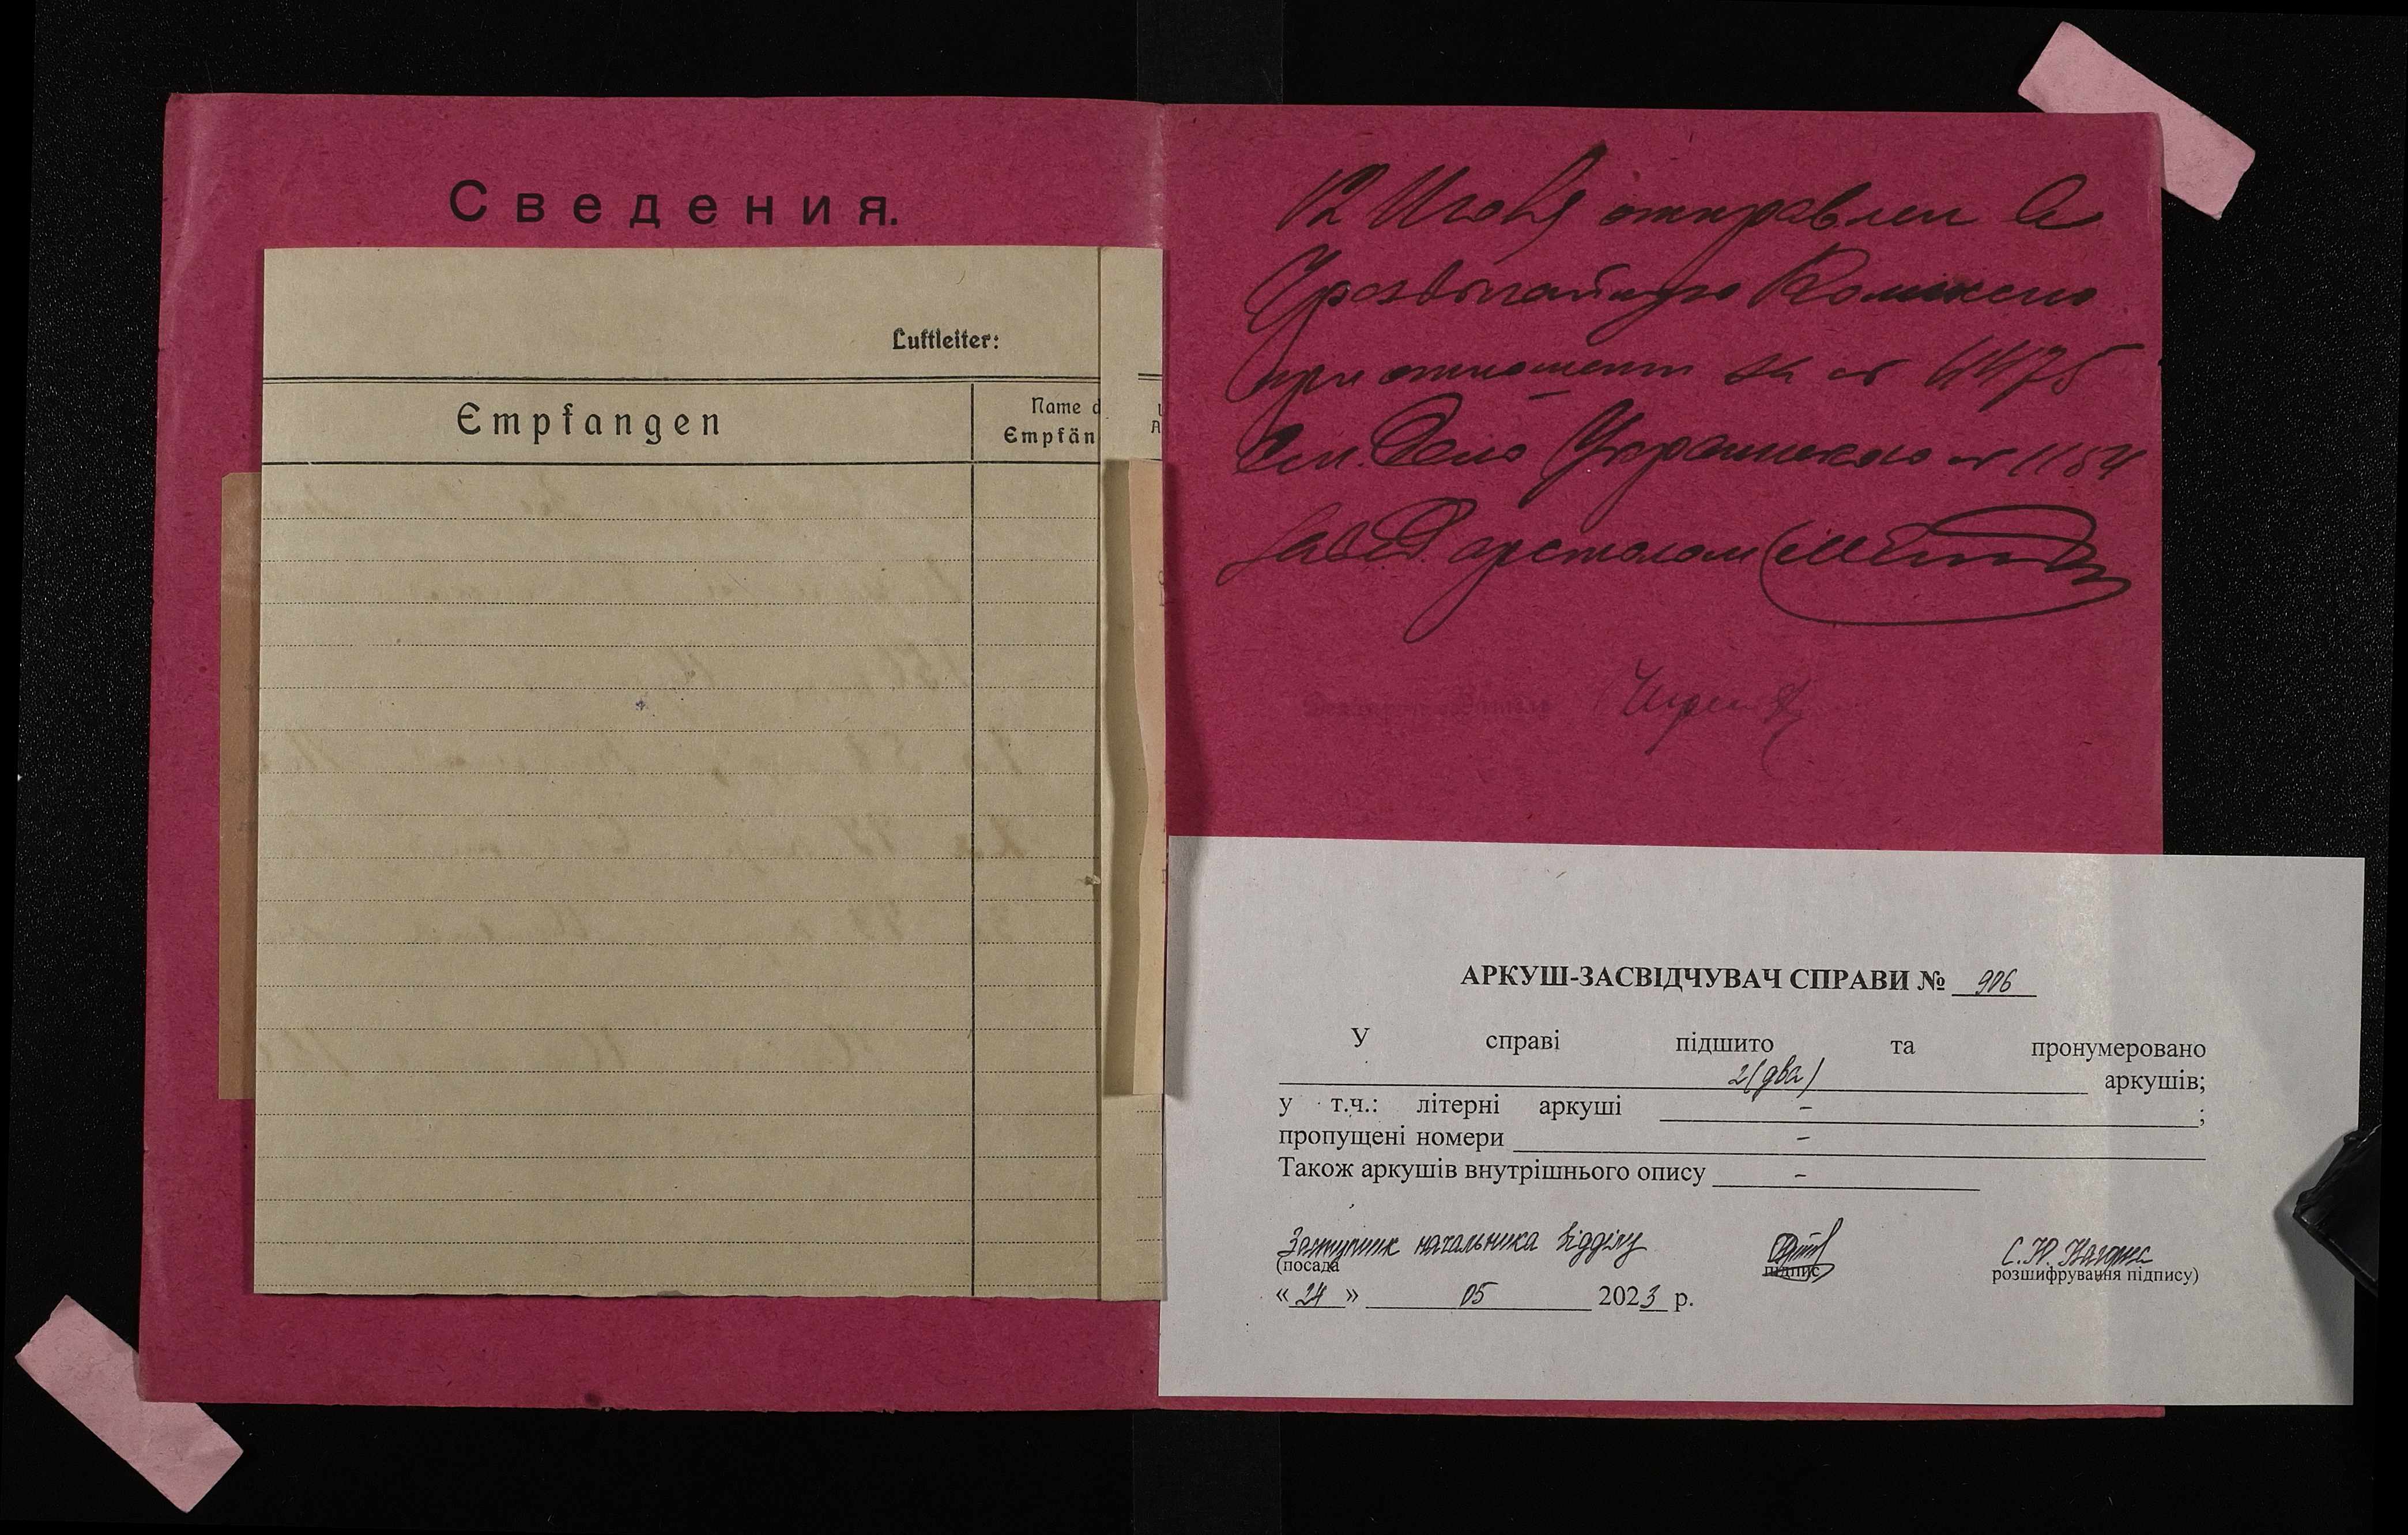 Сведения.
Luftleiter:
Empfangen
Name d
Empfän
12 Июня отправлен в
Чрезвычайную Комиссию
при отношении за № 4475
См. Дело Украинского № 1154
Завед арестолом
АРКУШ-ЗАСВІДЧУВАЧ СПРАВИ № 906
У справі підшито та пронумеровано
2 (два) аркушів;
у т.ч.: літерні аркуші – ;
пропущені номери –
Також аркушів внутрішнього опису –
Заступник начальника відділу
(посада підпис розшифрування підпису)
« 24 » 05 2023 р.